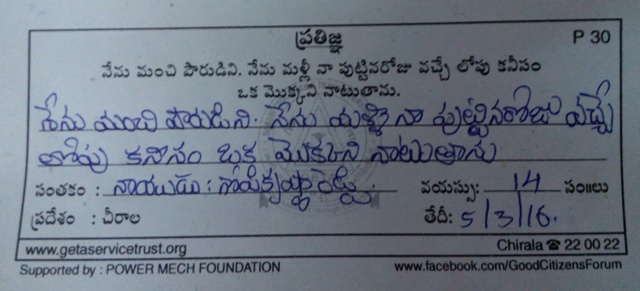 ప్రతిజ్ఞ P 30
నేను మంచి పౌరుడిని. నేను మళ్లీ నా పుట్టినరోజు వచ్చే లోపు కనీసం
ఒక మొక్కని నాటుతాను.
నేను మంచి పౌరుడిని. నేను మళ్ళీ నా పుట్టినరోజు వచ్చే
లోపు కనీసం ఒక మొక్కని నాటుతాను
సంతకం : నాయుడు : వయస్సు: 14 సం॥లు
ప్రదేశం : చీరాల తేదీ: 5/3/16.
www.getaservicetrust.org Chirala ☎ 22 00 22
Supported by : POWER MECH FOUNDATION www.facebook.com/GoodCitizensForum